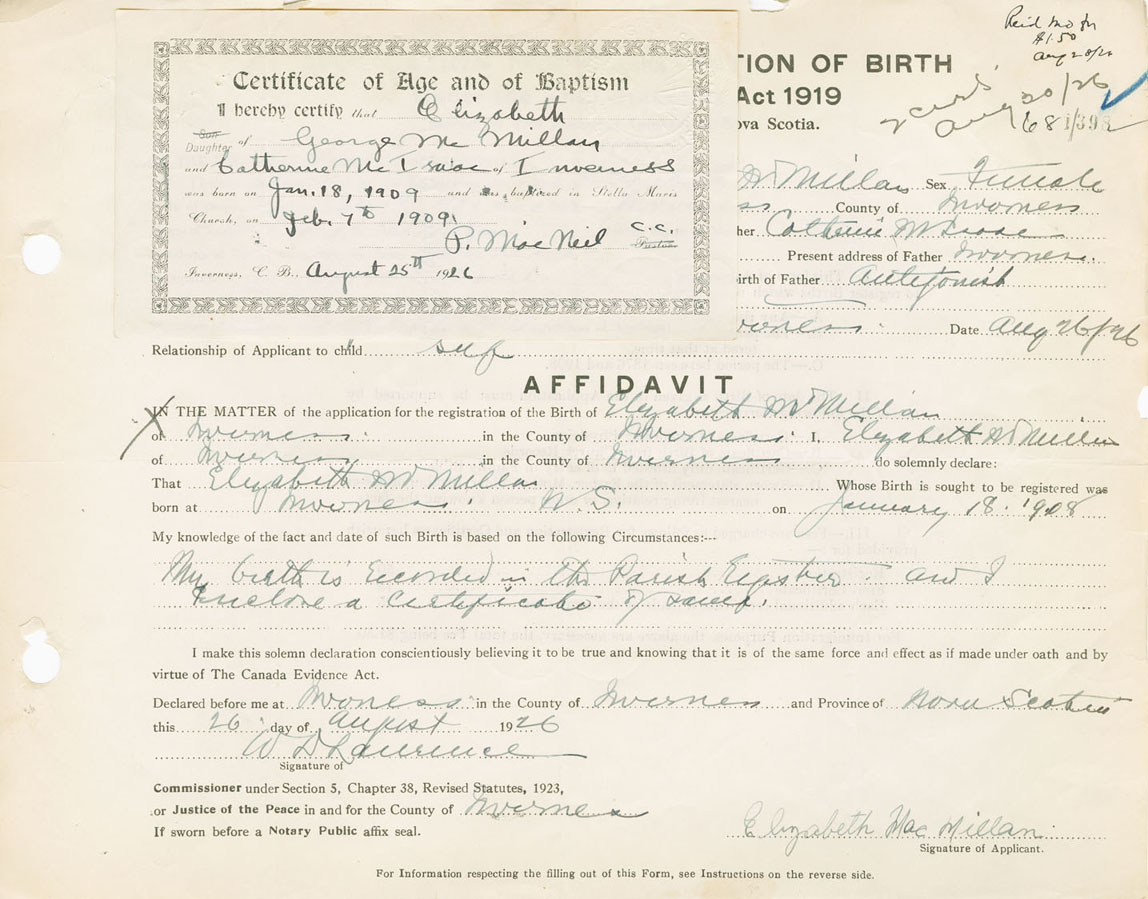 Paid mo for
$1.50
Aug 28/26
TION OF BIRTH
Act 1919
ova Scotia.
Aug 30/26
Certificate of Age and of Baptism
I hereby certify that Elizabeth
Son
Daughter of George Mc Millan
and Catherine Mc Isaac of Inverness
was born on Jan. 18, 1909 and was baptized in Stella Maris
Church, on Feb. 7th 1909.
P. MacNeil C.C.
Pastor
Inverness, C. B., August 25th 1926
McMillan Sex Female
ss County of Inverness
her Catherine McIsaac
Present address of Father Inverness
irth of Father Antigonish
verness. Date Aug 26/26
Relationship of Applicant to child self
AFFIDAVIT
IN THE MATTER of the application for the registration of the Birth of Elizabeth McMillan
of Inverness in the County of Inverness I, Elizabeth McMillan
of Inverness in the County of Inverness do solemnly declare:
That Elizabeth McMillan Whose Birth is sought to be registered was
born at Inverness N.S. on January 18. 1908
My knowledge of the fact and date of such Birth is based on the following Circumstances:---
My birth is recorded in the Parish Register and I
Enclose a Certificate of same.
I make this solemn declaration conscientiously believing it to be true and knowing that it is of the same force and effect as if made under oath and by
virtue of The Canada Evidence Act.
Declared before me at Inverness in the County of Inverness and Province of Nova Scotia
this 26 day of August 1926
W D Lawrence
Signature of
Commissioner under Section 5, Chapter 38, Revised Statutes, 1923,
or Justice of the Peace in and for the County of Inverness
If sworn before a Notary Public affix seal.
Elizabeth Mac Millan
Signature of Applicant.
For Information respecting the filling out of this Form, see Instructions on the reverse side.